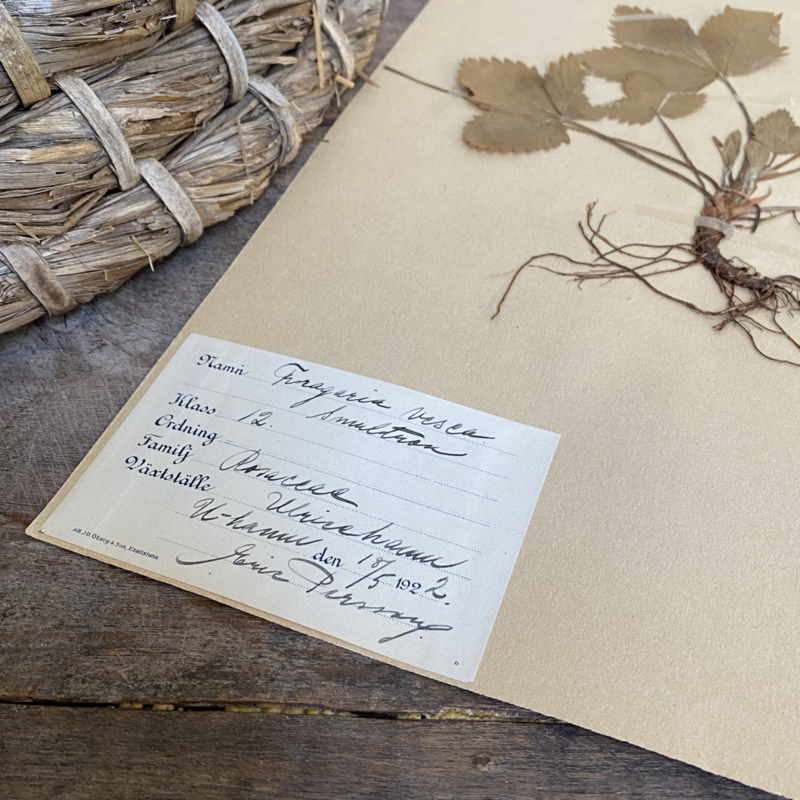 Namn Fragaria vesca
Smultron
Klass 12.
Ordning
Familj Rosaceae
Växtställe Ulricehamn
U-hamn den 18/5 1922.
Eric Persson
AB J.O. Öberg & Son, Eskilstuna